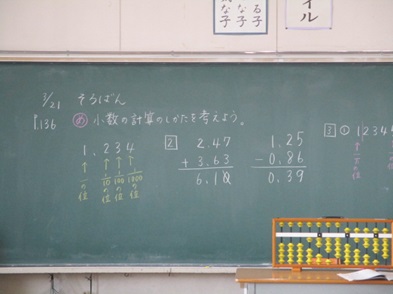 る子
な子
な子
イル
3/21 そろばん
P.136 め 小数の計算のしかたを考えよう。
1.234
1の位 1/10の位 1/100の位 1/1000の位
2 2.47
+3.63
6.10
1.25
-0.86
0.39
3 ① 1234
一の位